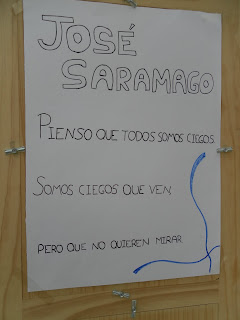 JOSÉ
SARAMAGO
PIENSO QUE TODOS SOMOS CIEGOS.
SOMOS CIEGOS QUE VEN.
PERO QUE NO QUIEREN MIRAR.